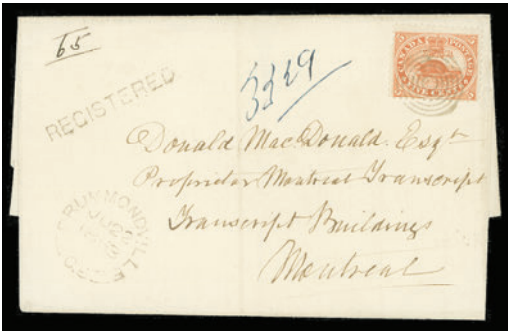 65
REGISTERED
3329
CANADA POSTAGE
Donald MacDonald. Esqre
Proprietor Montreal Transcript
Transcript Buildings
Montreal
DRUMMONDVILLE